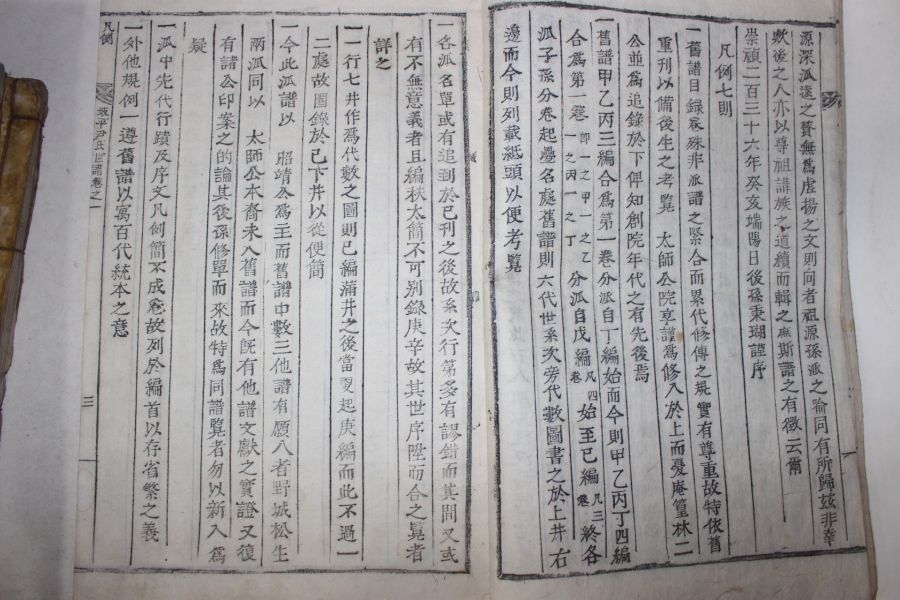 源深派遠之贅無爲虛揚之文則向者祖源孫派之喩同有所歸玆非幸
歟後之人亦以尊祖諱族之道續而輯之庶斯譜之有徵云爾
崇禎二百三十六年癸亥端陽日後孫秉瑚謹序
凡例七則
一舊譜目錄卷殊非派譜之緊合而累代修傳之規實有尊重故特依舊
重刊以備後生之考覽 太師公院享謹爲修入於上而憂庵篁林二
公並爲追錄於下俾知創院年代之有先後焉
一舊譜甲乙丙三編合爲第一卷分派自丁編始而今則甲乙丙丁四編
合爲第一卷 卽一之甲一之乙一之丙一之丁 分派自戊編 凡四卷 始至已編 凡三卷 終各
派子孫分卷起疊名處舊譜則六代世系次旁代數圖書之於上井右
邊而今則列載紙頭以便考覽
一各派名單或有追到於已刊之後故系次行第多有謬錯而其間又或
有不無意義者且編秩太簡不可別錄庚辛故其世序陞而合之覽者
詳之
一一行七井作爲代數之圖則已編滿井之後當更起庚編而此不過一
二處故圖錄於已下井以從便簡
一今此派譜以 昭靖公爲主而舊譜中數三他譜有願入者野城松生
兩派同以 太師公本裔未入舊譜而今旣有他譜文獻之實證又復
有諸公印案之的論其後孫修單而來故特爲同譜覽者勿以新入爲
疑
一派中先代行蹟及序文凡例簡不成卷故列於編首以存省繁之義
一外他規例一遵舊譜以寓百代統本之意
凡例
坡平尹氏世譜卷之一
三